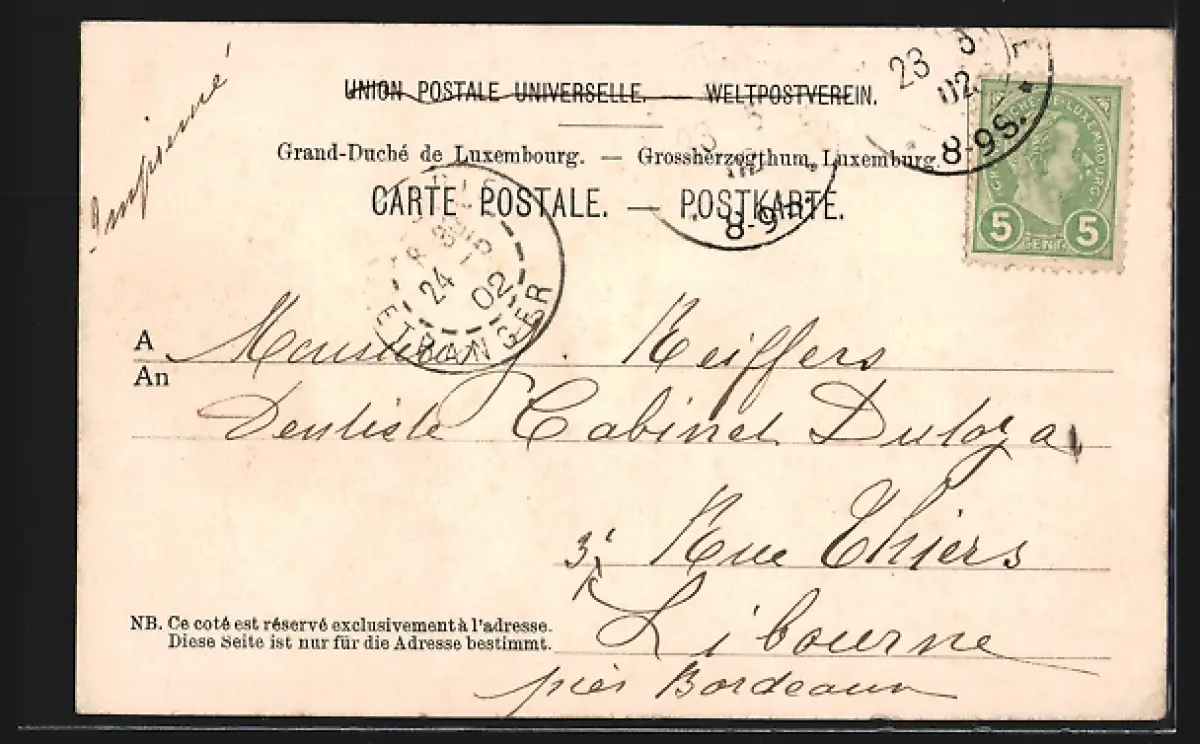 Imprimé
UNION POSTALE UNIVERSELLE. — WELTPOSTVEREIN.
Grand-Duché de Luxembourg. — Grossherzogthum Luxemburg.
CARTE POSTALE. — POSTKARTE.
23 02
8-9S.
GRAND DUCHÉ DE LUXEMBOURG
5 CENT. 5
23 5
8-9
24 -5
02
ETRANGER
A
An
Monsieur Reiffers
Dentiste Cabinet
3, Rue Thiers
Libourne
près Bordeaux
NB. Ce coté est réservé exclusivement à l'adresse.
Diese Seite ist nur für die Adresse bestimmt.